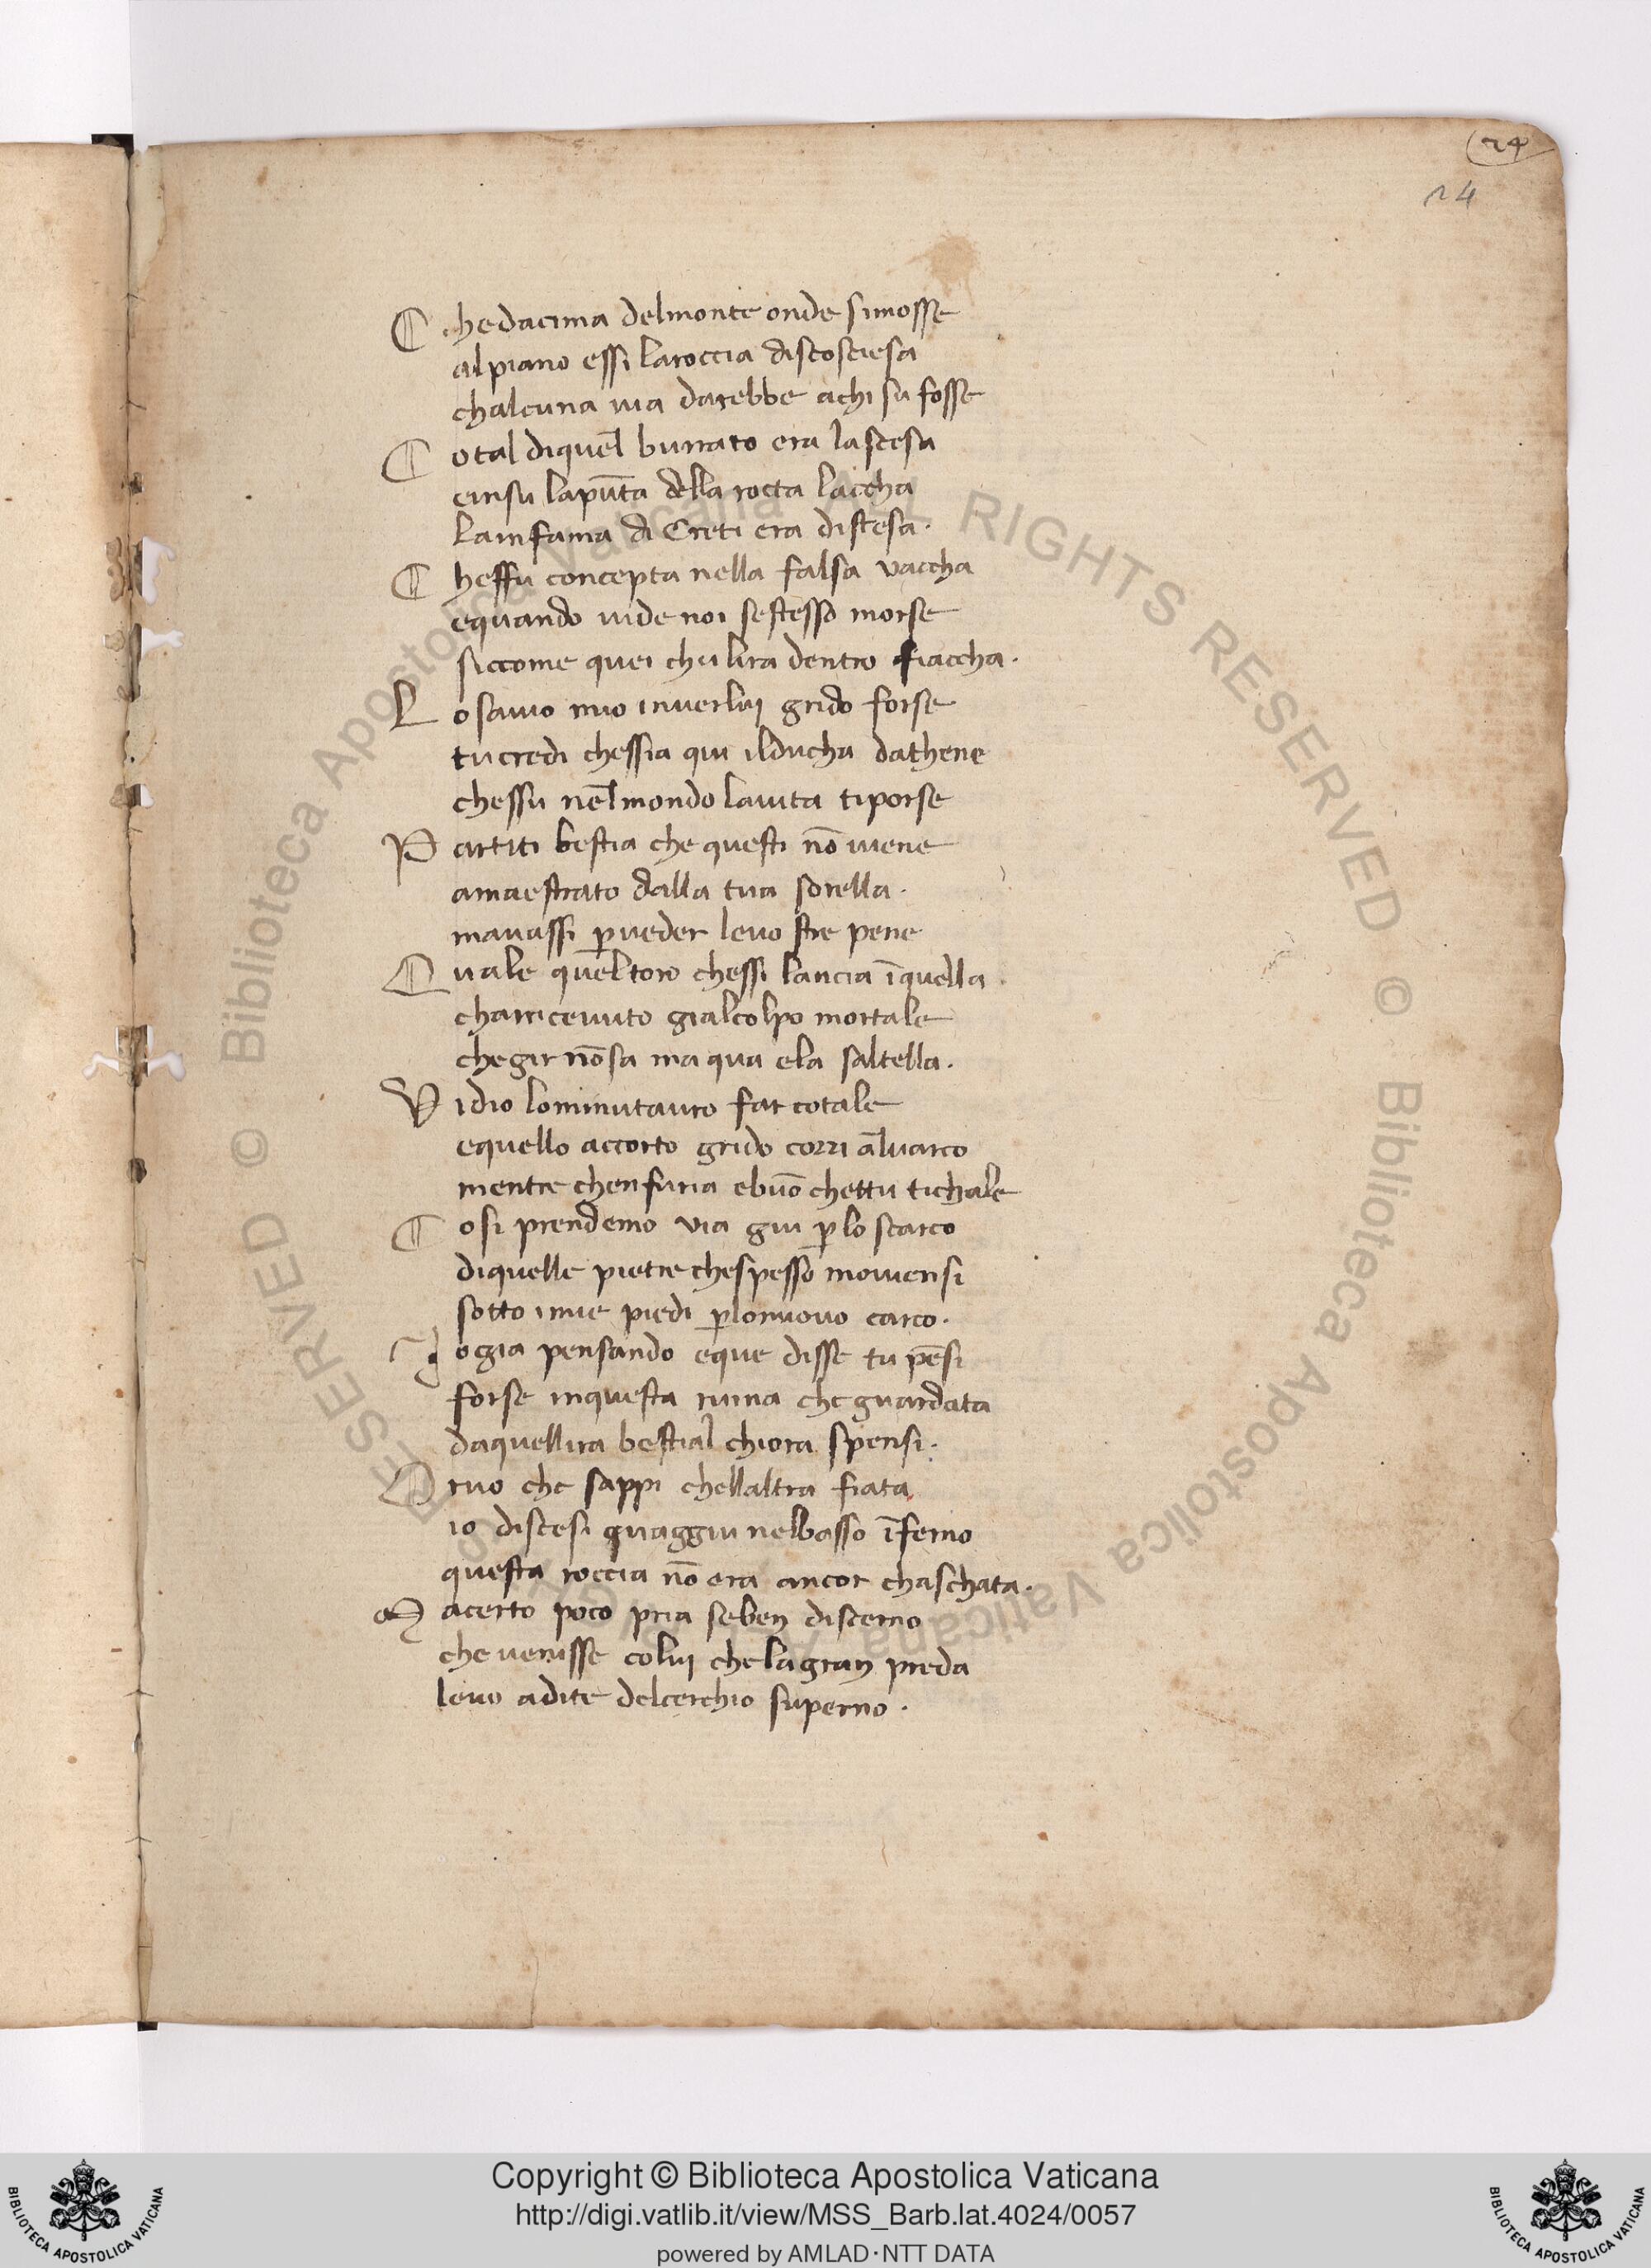 24
24
C hedacima delmonte onde simosse
alpiano essi laroccia discosciesa
chalcuna uia darebbe achi su fosse
C otal diquel burrato era lascesa
einsu lapūta della rocta laccha
lainfamia di Creti era distesa.
C heffu concepta nella falsa vaccha
equando uide noi sestesso morse
siccome quei chu lira dentro fiaccha.
L osauio mio inuerluj grido forse
tucredi chessia qui ilducha dathene
chessu nel mondo lauita tiporse
P artiti bestia che questi nō uiene
amaestrato dalla tua sorella.
mauassi ꝑueder leuostre pene
Q uale queltoro chessi lancia īquella.
charriceuuto gialcolpo mortale
chegir nōsa ma qua ela saltella.
V idio lominutauro far cotale
equello accorto grido corri aluarco
mentre chenfuria ebuō chettu tichale
C osi prendemo via giu ꝑ lo scarco
diquelle pietre chespesso mouiensi
sotto imie piedi ꝑlonuouo carco.
J ogia pensando eque disse tu pēsi
forse inquesta ruina che guardata
daquellira bestial chiora spensi.
O ruo che sappi chellaltra fiata
io discesi quaggiu nelbasso īferno
questa roccia nō era ancor chaschata.
M acerto poco pria seben discerno
che uenisse coluj chelagran preda
leuo adite delcerchio superno.
© Biblioteca Apostolica Vaticana ALL RIGHTS RESERVED © Biblioteca Apostolica Vaticana ALL RIGHTS RESERVED
Copyright © Biblioteca Apostolica Vaticana
http://digi.vatlib.it/view/MSS_Barb.lat.4024/0057
powered by AMLAD·NTT DATA
BIBLIOTECA APOSTOLICA VATICANA
BIBLIOTECA APOSTOLICA VATICANA